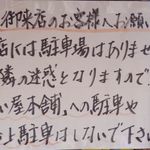 御来店のお客様へお願い
店には駐車場はありませ
隣の迷惑となりますので
い屋本舗」への駐車や
上駐車はしないで下さ